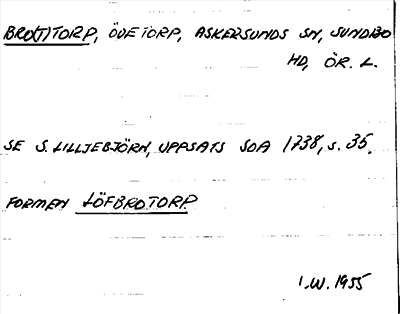 BRO(T)TORP, ÖDETORP, ASKERSUNDS SN, SUNDBO
HD, ÖR. L.
SE S. LILLJEBJÖRN, UPPSATS SOA 1738, s. 35.
FORMEN LÖFBROTORP
I.W. 1955